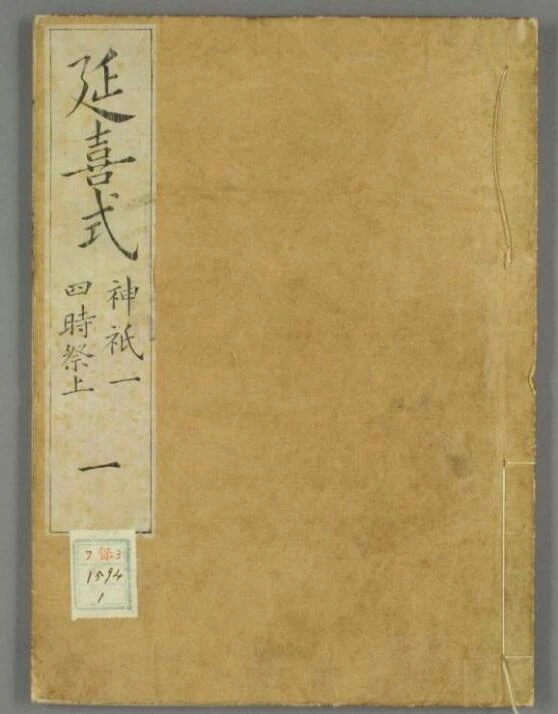 延喜式
神祇一
四時祭上
一
ワ 録3
1594
1